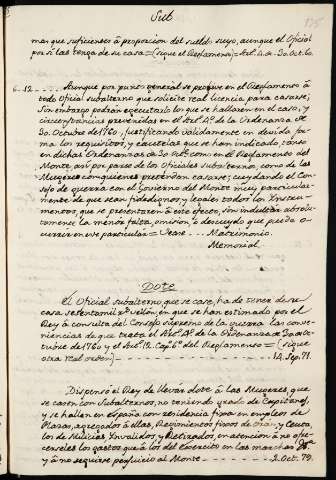 Sub
175
mas que suficientes à proporcion del sueldo suyo, aunque el Oficial
por si las tenga de su casa = (sigue el Reglamento) = Art. 4. de 30. Oct. 60.
6-12 Aunque por punto general se prohive en el Reglamento à
todo Oficial subalterno que solicite real licencia para casarse;
Sin embargo podrán executarlo los que se hallaren en el caso, y
circunstancias prevenidas en el Art. 4º de la Ordenanza de
30. Octubre de 1760, justificando validamente en devida for
ma los requisitos, y cautelas que se han indicado, tanto
en dichas Ordenanzas de 30. Oct. como en el Reglamento del
Monte, asi por parte de los Oficiales subalternos, como de las
Mugeres con quienes pretendan casarse; cuydando el Con
sejo de guerra con el Govierno del Monte muy particular
mente de que sean fidedignos, y legales todos los Instru
mentos, que se presentaren à este efecto, sin indultar absolu
tamente la menor falta, omision, ò descuydo que pueda o
currir en este particular = Vease Matrimonio.
Memorial.
Dote
El Oficial subalterno que se case, ha de tener de su
casa setenta mil rs. vellon, en que se han estimado por el
Rey à consulta del Consejo supremo de la guerra las con
veniencias de que trata el Art. 4º de la Ordenanza de 30 de oc
tubre de 1760 y el Art. 12. Cap. 6º del Reglamento = (sigue
otra real orden) 14. Sep. 71.
Dispensó el Rey de llevar dote à las Mugeres, que
se casen con Subalternos, no teniendo grado de Capitanes,
y se hallen en España con residencia fixa en empleos de
Plazas, agregados à ellas, Regimientos fixos de Oran, y Ceuta,
los de Milicias Invalidos y Retirados, en atencion à no ofre
cerseles los gastos que à los del Exercito en las marchas
y à no seguirse perjuicio al Monte 2. Oct. 79.